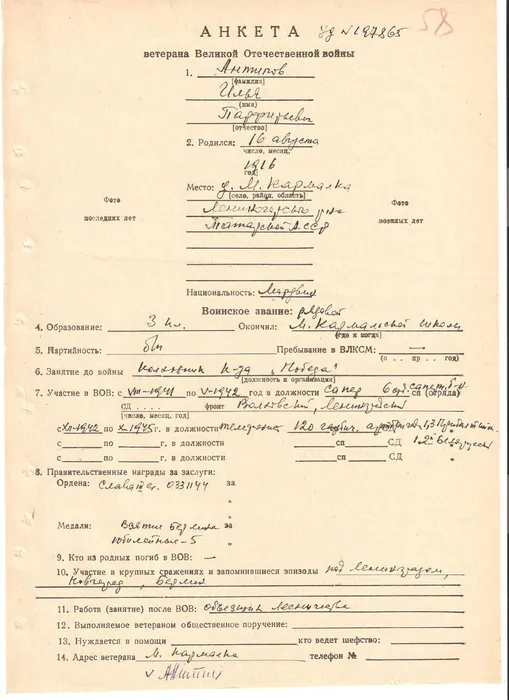 АНКЕТА Уд №197865 58
ветерана Великой Отечественной войны
1. Антипов
(фамилия)
Илья
(имя)
Парфирьевич
(отчество)
2. Родился: 16 августа
число, месяц,
1916
год)
Место: д. М. Кармалка
(село, район, область)
Фото последних лет
Фото военных лет
Лениногорского р-на
Татарской АССР
Национальность: Мордвин
Воинское звание: рядовой
4. Образование: 3 кл. Окончил: М. Кармальской школы
(где и когда)
5. Партийность: б/п Пребывание в ВЛКСМ: —
(с . . пр . . год)
6. Занятие до войны колхозник к-за "Победа"
(должность и организация)
7. Участие в ВОВ: с VIII-1941 по V-1942 год в должности сапер 6 сп (отряда)
СД . . . . фронт Волховский, Ленинградский
(число, месяц, год)
с XII-1942 по X 1945 г. в должности телефонист 120 гаубич.
с по г. в должности сп СД 1, 2
с по г. в должности сп СД "
8. Правительственные награды за заслуги:
Ордена: Слава III ст. 0331144 за
"
"
Медали: Взятие Берлина за
юбилейные-5 "
9. Кто из родных погиб в ВОВ: —
10. Участие в крупных сражениях и запомнившиеся эпизоды под Ленинградом,
Новгород, Берлин
11. Работа (занятие) после ВОВ: объездчик лесничества
12. Выполняемое ветераном общественное поручение:
13. Нуждается в помощи кто ведет шефство:
14. Адрес ветерана М. Кармалка телефон №
v